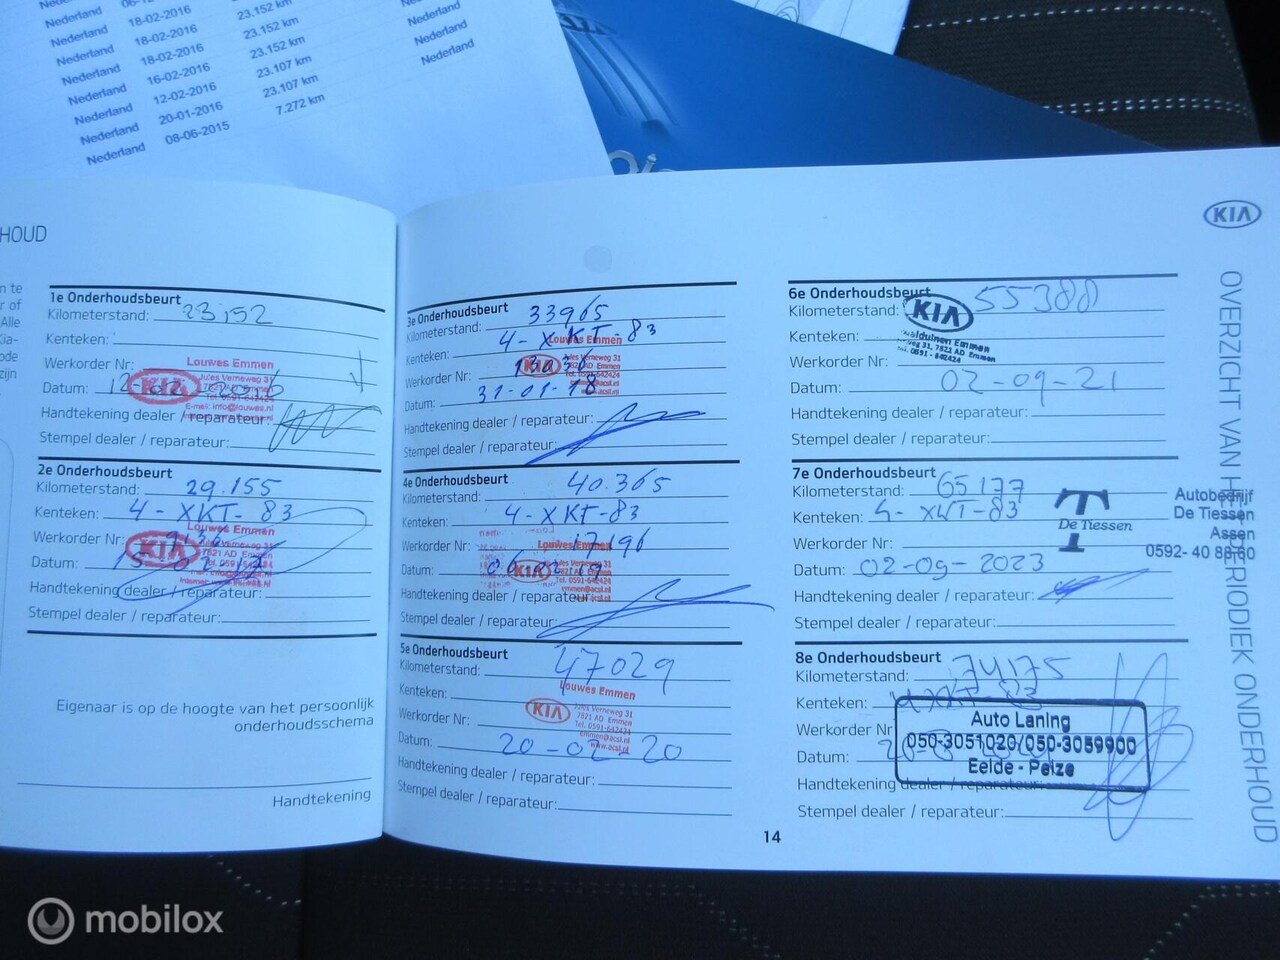 Nederland
Nederland 18-02-2016 23.152 km
Nederland 18-02-2016 23.152 km
Nederland 18-02-2016 23.152 km
Nederland 16-02-2016 23.152 km
Nederland 12-02-2016 23.107 km
Nederland 20-01-2016 23.107 km
Nederland 08-06-2015 7.272 km
Nederland
Nederland
Nederland
KIA
HOUD
n te
r of
Alle
Kia-
ode
zijn
1e Onderhoudsbeurt
Kilometerstand: 23152
Kenteken:
Werkorder Nr:
Louwes Emmen
KIA
Jules Verneweg 31
Datum:
Tel. 0591-642424
E-mail: info@louwes.nl
Handtekening dealer / reparateur:
Stempel dealer / reparateur:
2e Onderhoudsbeurt
Kilometerstand: 29.155
Kenteken: 4-XKT-83
Louwes Emmen
Werkorder Nr:
KIA
Jules Verneweg 31
7821 AD Emmen
Datum:
Handtekening dealer / reparateur:
Stempel dealer / reparateur:
Eigenaar is op de hoogte van het persoonlijk
onderhoudsschema
Handtekening
3e Onderhoudsbeurt
Kilometerstand: 33965
Kenteken: 4-XKT-83
Louwes Emmen
Werkorder Nr:
KIA
Jules Verneweg 31
Datum: 31-01-18
Handtekening dealer / reparateur:
Stempel dealer / reparateur:
4e Onderhoudsbeurt
Kilometerstand: 40.365
Kenteken: 4-XKT-83
Louwes Emmen
Werkorder Nr: 17196
KIA
Datum:
Handtekening dealer / reparateur:
Stempel dealer / reparateur:
5e Onderhoudsbeurt
Kilometerstand: 47029
Kenteken:
Louwes Emmen
KIA
Jules Verneweg 31
7821 AD Emmen
Tel. 0591-642424
emmen@acsl.nl
www.acsl.nl
Werkorder Nr:
Datum: 20-02-20
Handtekening dealer / reparateur:
Stempel dealer / reparateur:
KIA
OVERZICHT VAN HET PERIODIEK ONDERHOUD
6e Onderhoudsbeurt
Kilometerstand: 55388
KIA
Kenteken:
Emmen
7821 AD Emmen
tel. 0591 - 642424
Werkorder Nr:
Datum: 02-09-21
Handtekening dealer / reparateur:
Stempel dealer / reparateur:
7e Onderhoudsbeurt
Kilometerstand: 65177
Kenteken: 4-XKT-83
De Tiessen
Autobedrijf
De Tiessen
Assen
0592- 40 88 60
Werkorder Nr:
Datum: 02-09-2023
Handtekening dealer / reparateur:
Stempel dealer / reparateur:
8e Onderhoudsbeurt
Kilometerstand: 74175
Kenteken: 4XKT-83
Werkorder Nr
Auto Laning
050-3051020/050-3059900
Eelde - Peize
Datum:
Handtekening dealer / reparateur:
Stempel dealer / reparateur:
14
mobilox